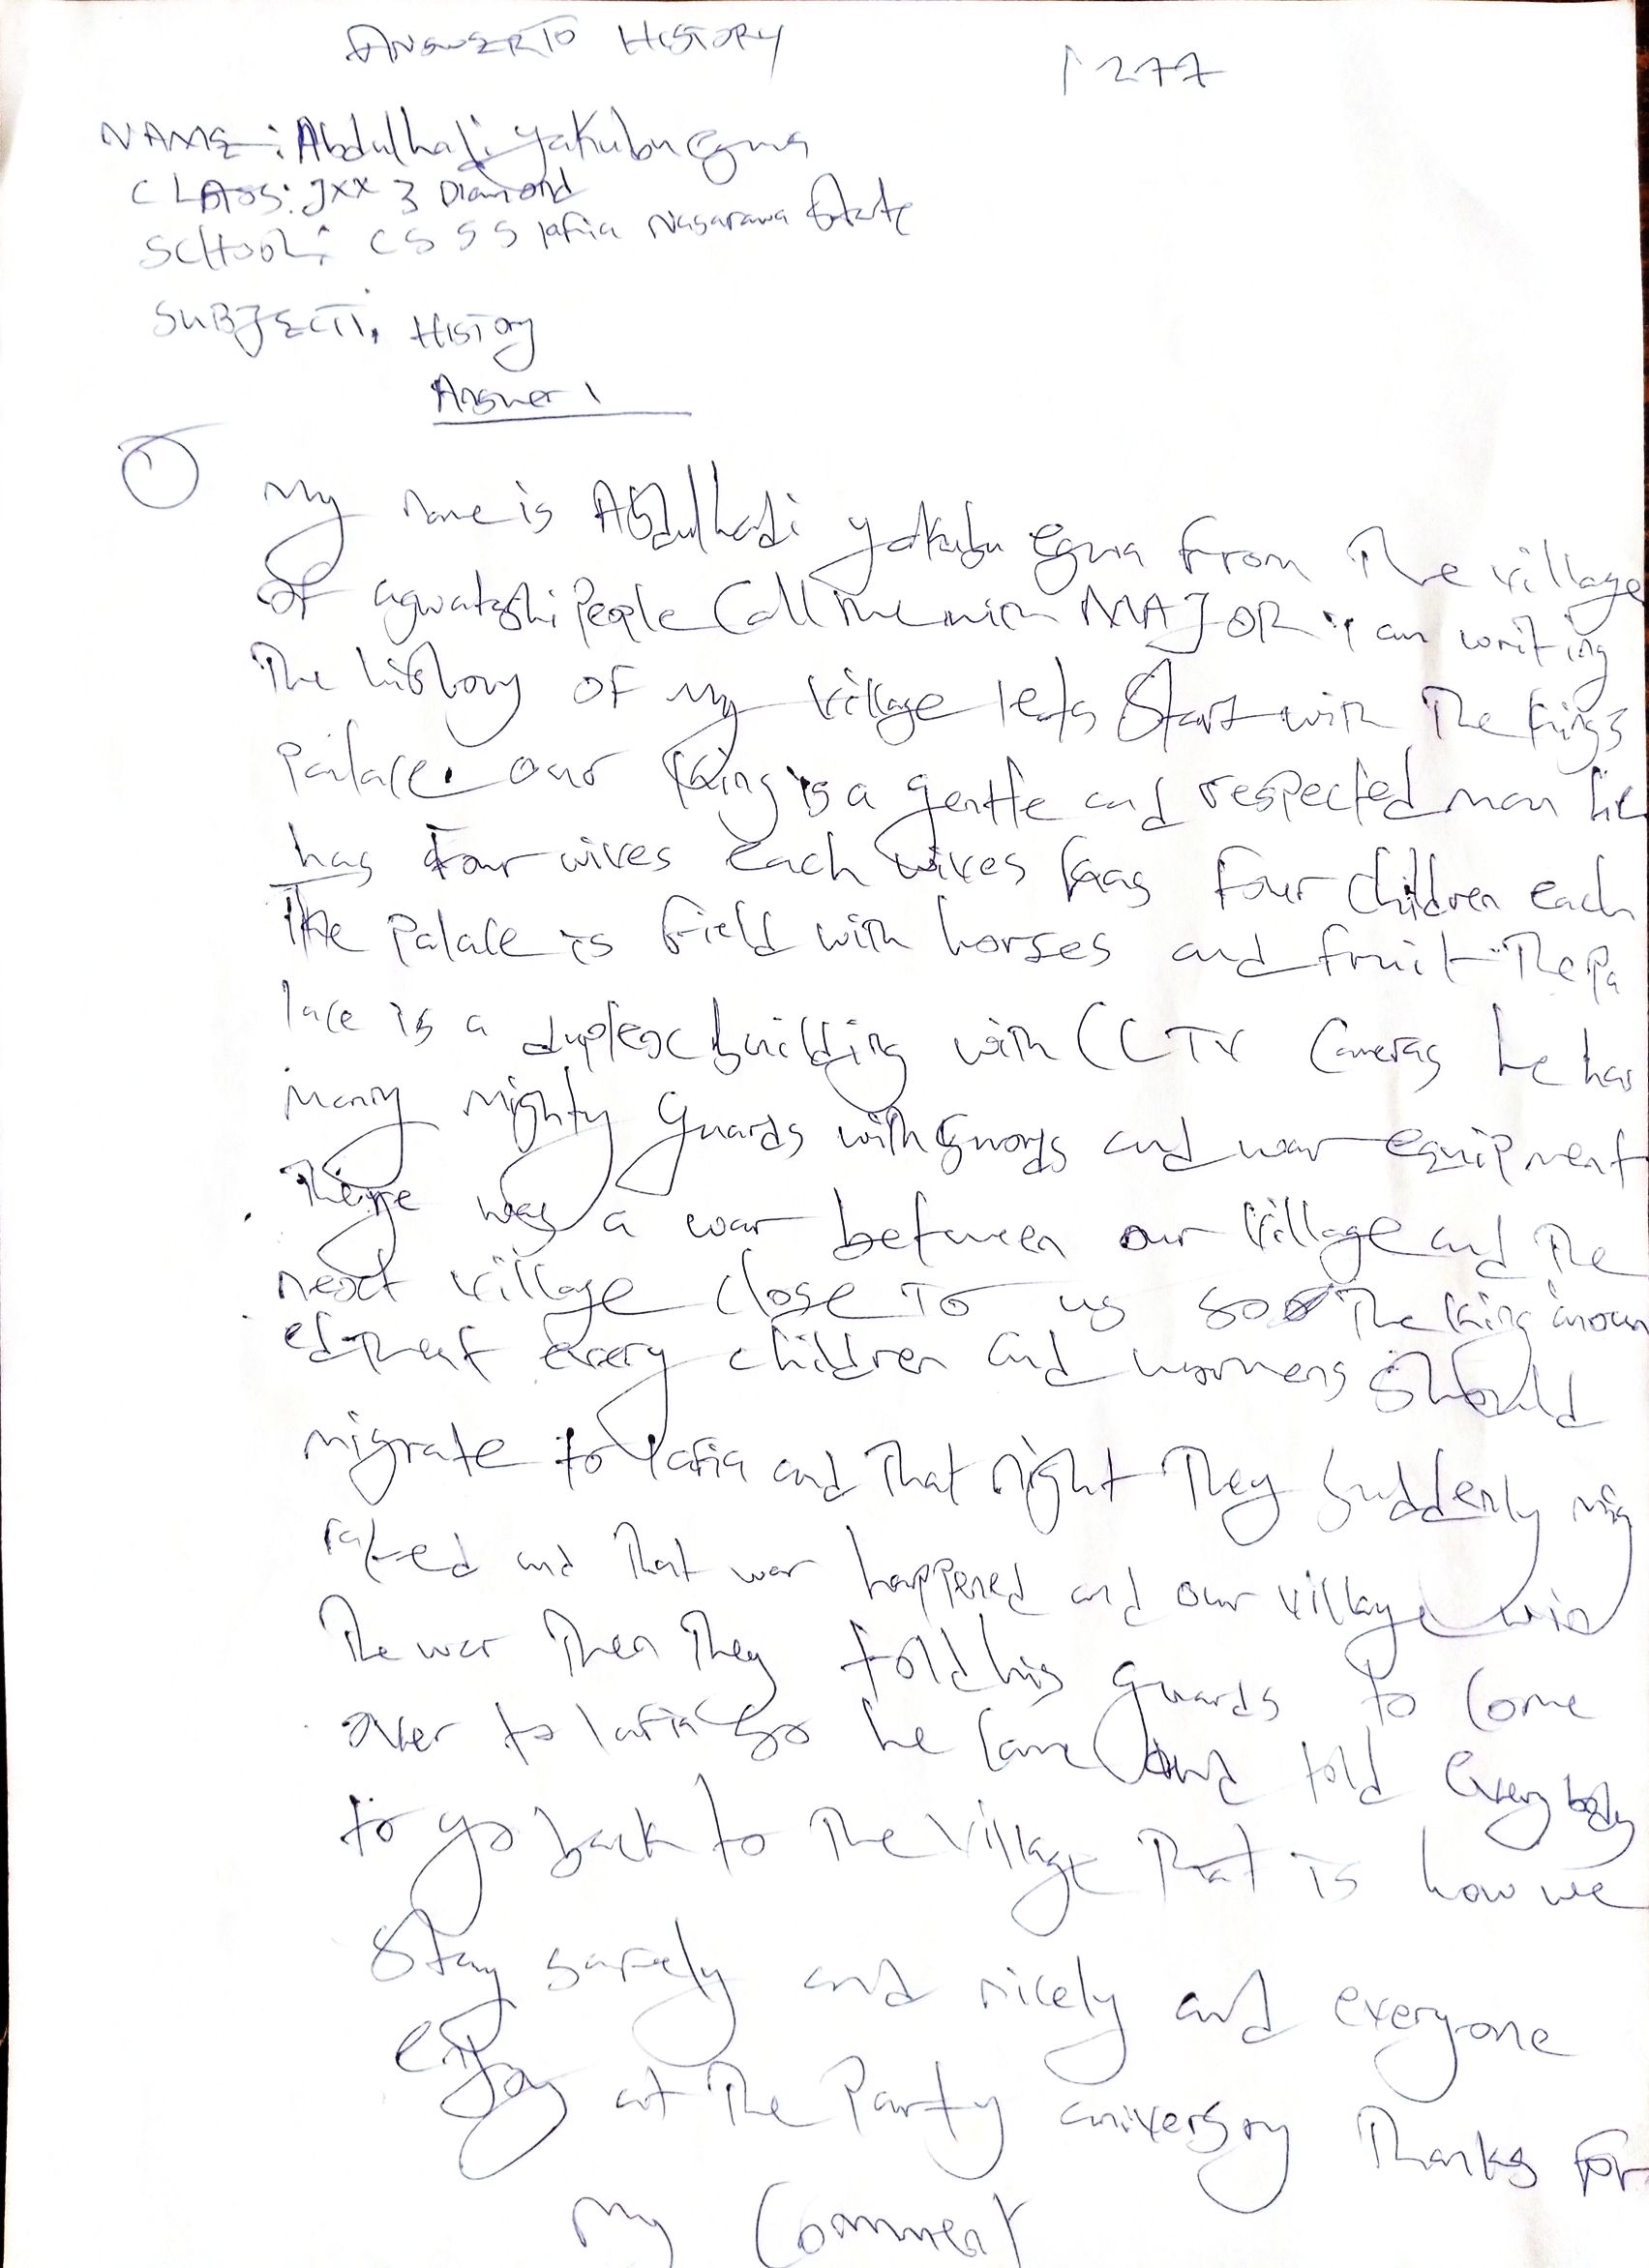 ANSWER TO HISTORY
1277
NAME: Abdulhadi yakubu egwa
CLASS: JXX 3 Diamond
SCHOOL: CSSS lafia Nasarawa State
SUBJECT: History
Answer 1
① My name is Abdulhadi yakubu egwa from The village
of agwatashi People Call me with MAJOR i am writing
The history of my village lets Start with The kings
Palace. our king is a gentle and respected man he
has four wives each wives has four children each
The palace is field with horses and fruit The Pa
lace is a duplex building with CCTV Cameras he has
many mighty guards with swords and war equipment
There was a war between our village and the
next village close To us so The king anoun
ed that every children and womens should
migrate to lafia and That night They suddenly mig
rated and That war happened and our village win
The war Then They told his guards to come
over to lafia so he came and told everybody
to go back to The village That is how we
stay safely and nicely and everyone
enjoy at The Party aniversary Thanks For
My Comment